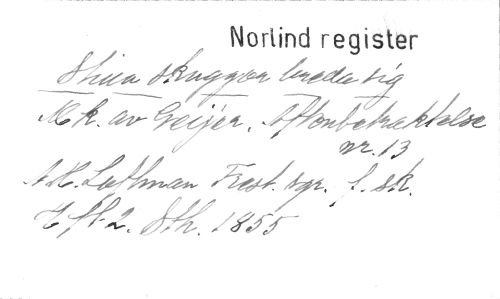 Norlind register
Stilla skuggor breda sig
Mk. av Geijer. Aftonbetraktelse
nr. 13
A.H. Luthman Frest. sgr. f. sk.
H ft. 2. Sth. 1855